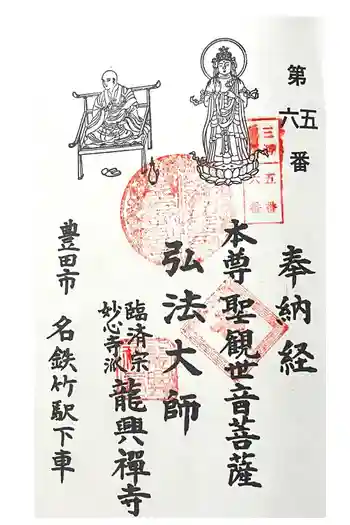 第五六番
三河
五六番
奉納経
本尊聖観世音菩薩
弘法大師
臨済宗
妙心寺派
龍興禪寺
豊田市 名鉄竹駅下車